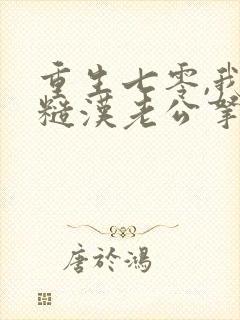 重生七零,我
糙漢老公掌
唐於鴻